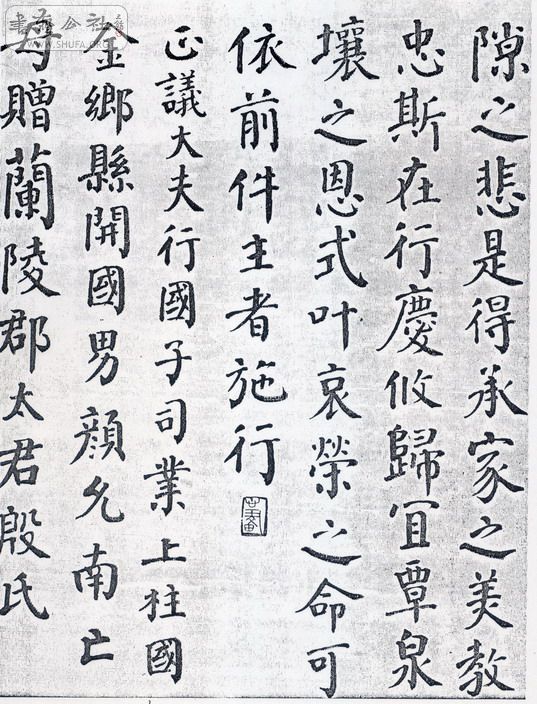 隙之悲是得承家之美教
忠斯在行慶攸歸冝覃泉
壤之恩式叶哀榮之命可
依前件主者施行
正議大夫行國子司業上柱國
金鄉縣開國男顏允南亡
母贈蘭陵郡太君殷氏
WWW.SHUFA.ORG